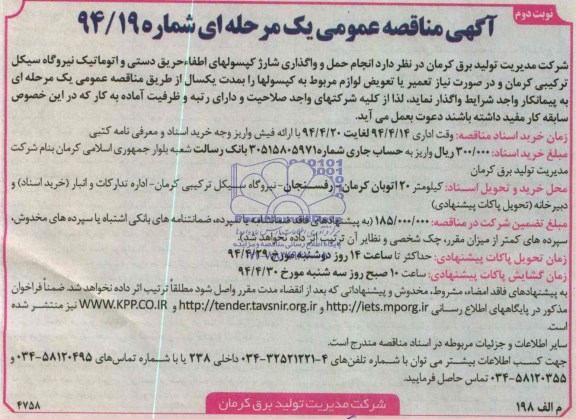 نوبت دوم
آگهی مناقصه عمومی یک مرحله ای شماره ۹۴/۱۹
شرکت مدیریت تولید برق کرمان در نظر دارد انجام حمل و واگذاری شارژ کپسولهای اطفاءحریق دستی و اتوماتیک نیروگاه سیکل
ترکیبی کرمان و در صورت نیاز تعمیر یا تعویض لوازم مربوط به کپسولها را بمدت یکسال از طریق مناقصه عمومی یک مرحله ای
به پیمانکار واجد شرایط واگذار نماید، لذا از کلیه شرکتهای واجد صلاحیت و دارای رتبه و ظرفیت آماده به کار که در این خصوص
سابقه کار مفید داشته باشند دعوت بعمل می آید.
زمان خرید اسناد مناقصه: وقت اداری ۹۴/۴/۱۴ لغایت ۹۴/۴/۲۰ با ارائه فیش واریز وجه خرید اسناد و معرفی نامه کتبی
مبلغ خرید اسناد: ۳۰۰/۰۰۰ ریال واریز به حساب جاری شماره ۳۰۵۱۵۸۰۵۹۷۱ بانک رسالت شعبه بلوار جمهوری اسلامی کرمان بنام شرکت
مدیریت تولید برق کرمان
محل خرید و تحویل اسناد: کیلومتر ۲۰ اتوبان کرمان- رفسنجان- نیروگاه سیکل ترکیبی کرمان- اداره تدارکات و انبار (خرید اسناد) و
دبیرخانه (تحویل پاکات پیشنهادی)
مبلغ تضمین شرکت در مناقصه: ۱۸۵/۰۰۰/۰۰۰ (به پیشنهادهای فاقد ضمانتنامه یا سپرده، ضمانتنامه های بانکی اشتباه یا سپرده های مخدوش،
سپرده های کمتر از میزان مقرر، چک شخصی و نظایر آن ترتیب اثر داده نخواهد شد).
زمان تحویل پاکات پیشنهادی: حداکثر تا ساعت ۱۴ روز دوشنبه مورخ ۹۴/۴/۲۹
زمان گشایش پاکات پیشنهادی: ساعت ۱۰ صبح روز سه شنبه مورخ ۹۴/۴/۳۰
به پیشنهادهای فاقد امضاء، مشروط، مخدوش و پیشنهاداتی که بعد از انقضاء مدت مقرر واصل شود مطلقاً ترتیب اثر داده نخواهد شد. ضمناً فراخوان
مذکور در پایگاههای اطلاع رسانی http://iets.mporg.ir و http://tender.tavsnir.org.ir و WWW.KPP.CO.IR نیز منتشر شده
است.
سایر اطلاعات و جزئیات مربوطه در اسناد مناقصه مندرج است.
جهت کسب اطلاعات بیشتر می توان با شماره تلفن های ۴-۳۲۵۲۱۲۲۱-۰۳۴ داخلی ۲۳۸ یا با شماره تماس‌های ۵۸۱۲۰۴۹۵-۰۳۴ و
۵۸۱۲۰۳۵۵-۰۳۴ تماس حاصل فرمایید.
م الف ۱۹۸
شرکت مدیریت تولید برق کرمان
۴۷۵۸